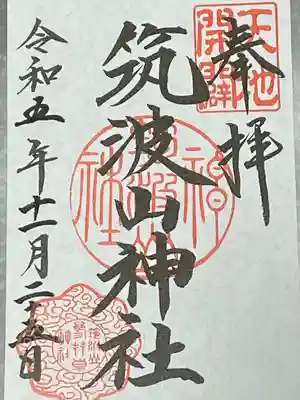 奉拝
天地開闢
筑波山神社
令和五年十一月二十五日